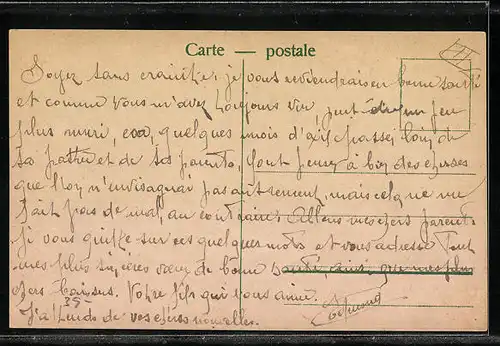 Carte — postale
Soyez sans crainte, je vous reviendrais en bonne santé
et comme vous m'avez toujours vu, peut être un peu
plus muri, car, quelques mois d'exil passés loin de
sa patrie et de ses parents, font penser à bien des choses
que l'on n'envisageait pas autrement, mais cela ne me
fait pas de mal, au contraire. Allons mes chers parents
je vous quitte sur ces quelques mots et vous adresse tout
mes plus sincères vœux de bonne santé, ainsi que mes plus
chers baisers. Votre fils qui vous aime.
J'attends de vos chères nouvelles.